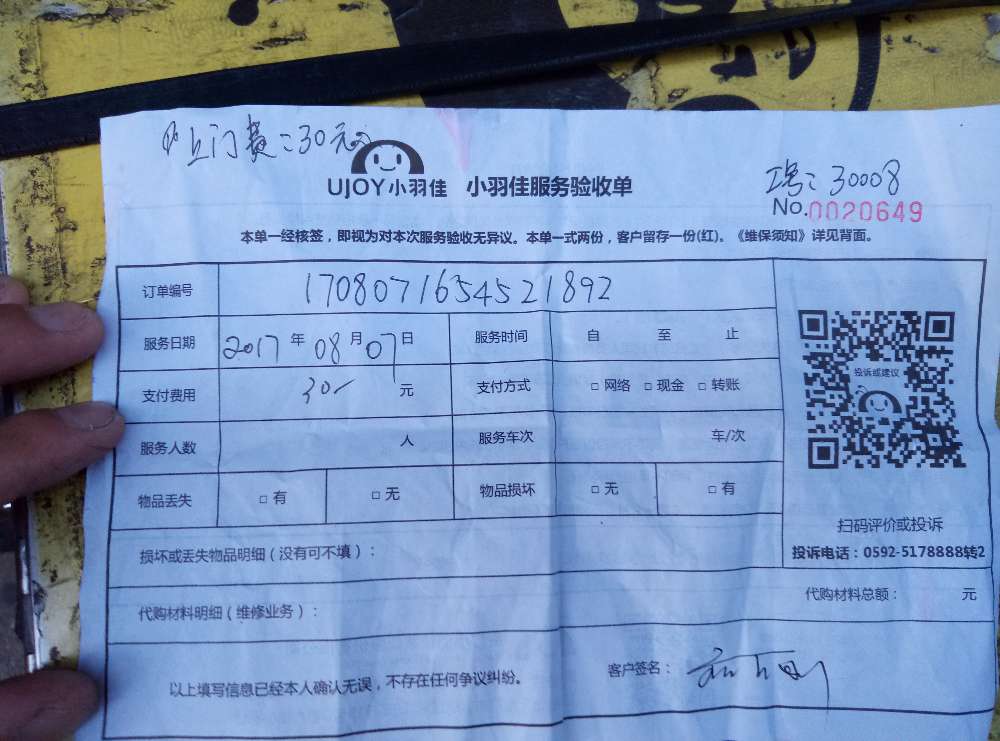 上门费：30元
UJOY小羽佳 小羽佳服务验收单
工号：30008
No.0020649
本单一经核签，即视为对本次服务验收无异议。本单一式两份，客户留存一份(红)。《维保须知》详见背面。
订单编号 1708071654521892
服务日期 2017年08月07日 服务时间 自 至 止
支付费用 30- 元 支付方式 □ 网络 □ 现金 □ 转账
服务人数 人 服务车次 车/次
物品丢失 □ 有 □ 无 物品损坏 □ 无 □ 有
投诉或建议
扫码评价或投诉
投诉电话：0592-5178888转2
损坏或丢失物品明细（没有可不填）：
代购材料明细（维修业务）： 代购材料总额： 元
以上填写信息已经本人确认无误，不存在任何争议纠纷。 客户签名：